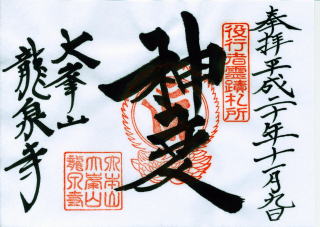 奉拝 平成二十年十一月九日
役行者霊蹟札所
神変
大峯山
龍泉寺
大本山
大峯山
龍泉寺